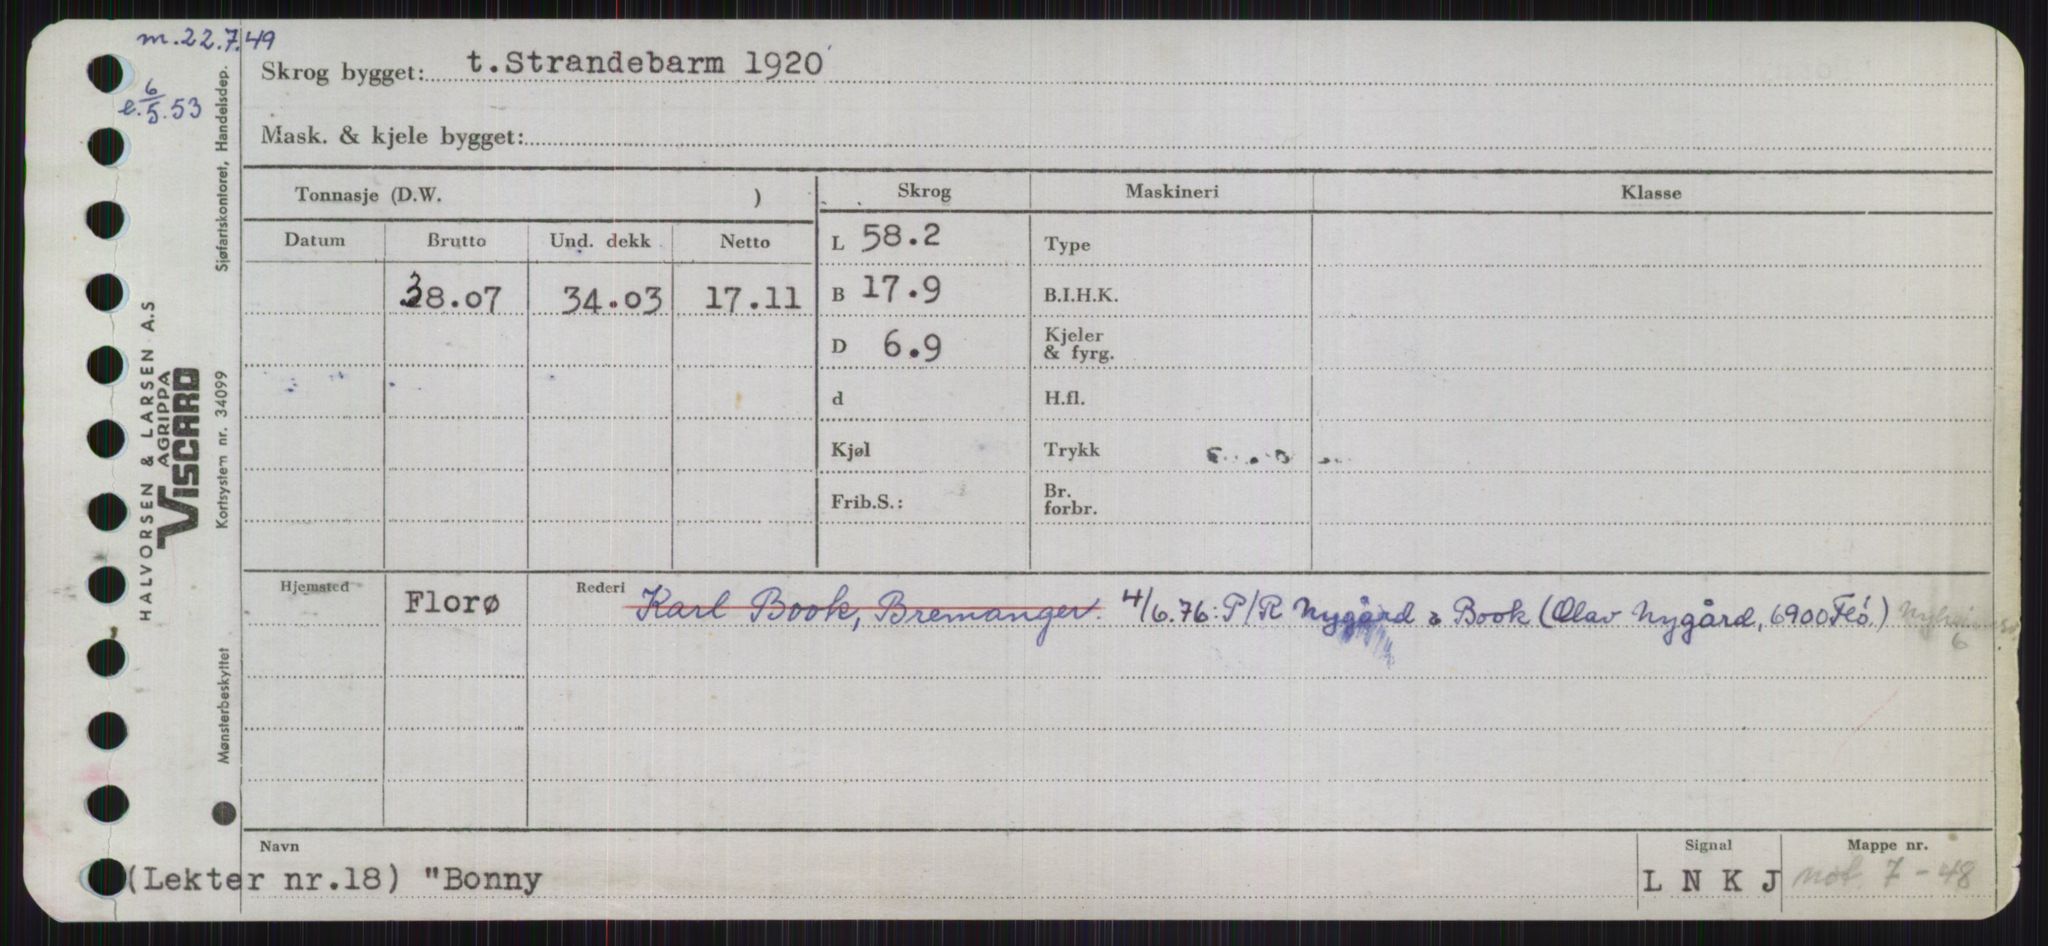 m.22.7.49
e. 6/5.53
Skrog bygget: t.Strandebarm 1920
Mask. & kjele bygget:
Tonnasje (D.W. )
Skrog
Maskineri
Klasse
Datum Brutto Und. dekk Netto
38.07 34.03 17.11
L 58.2
B 17.9
D 6.9
d
Kjøl
Frib.S.:
Type
B.I.H.K.
Kjeler
& fyrg.
H.fl.
Trykk
Br.
forbr.
Hjemsted Florø
Rederi Karl Book, Bremanger. 4/6.76: P/R Nygård & Book (Olav Nygård, 6900 Flø.)
6
Navn
(Lekter nr.18) "Bonny
Signal
L N K J
Mappe nr.
mot. 7-48
HALVORSEN & LARSEN A.S
AGRIPPA
VISCARD
Sjøfartskontoret, Handelsdep.
Kortsystem nr. 34099
Mønsterbeskyttet